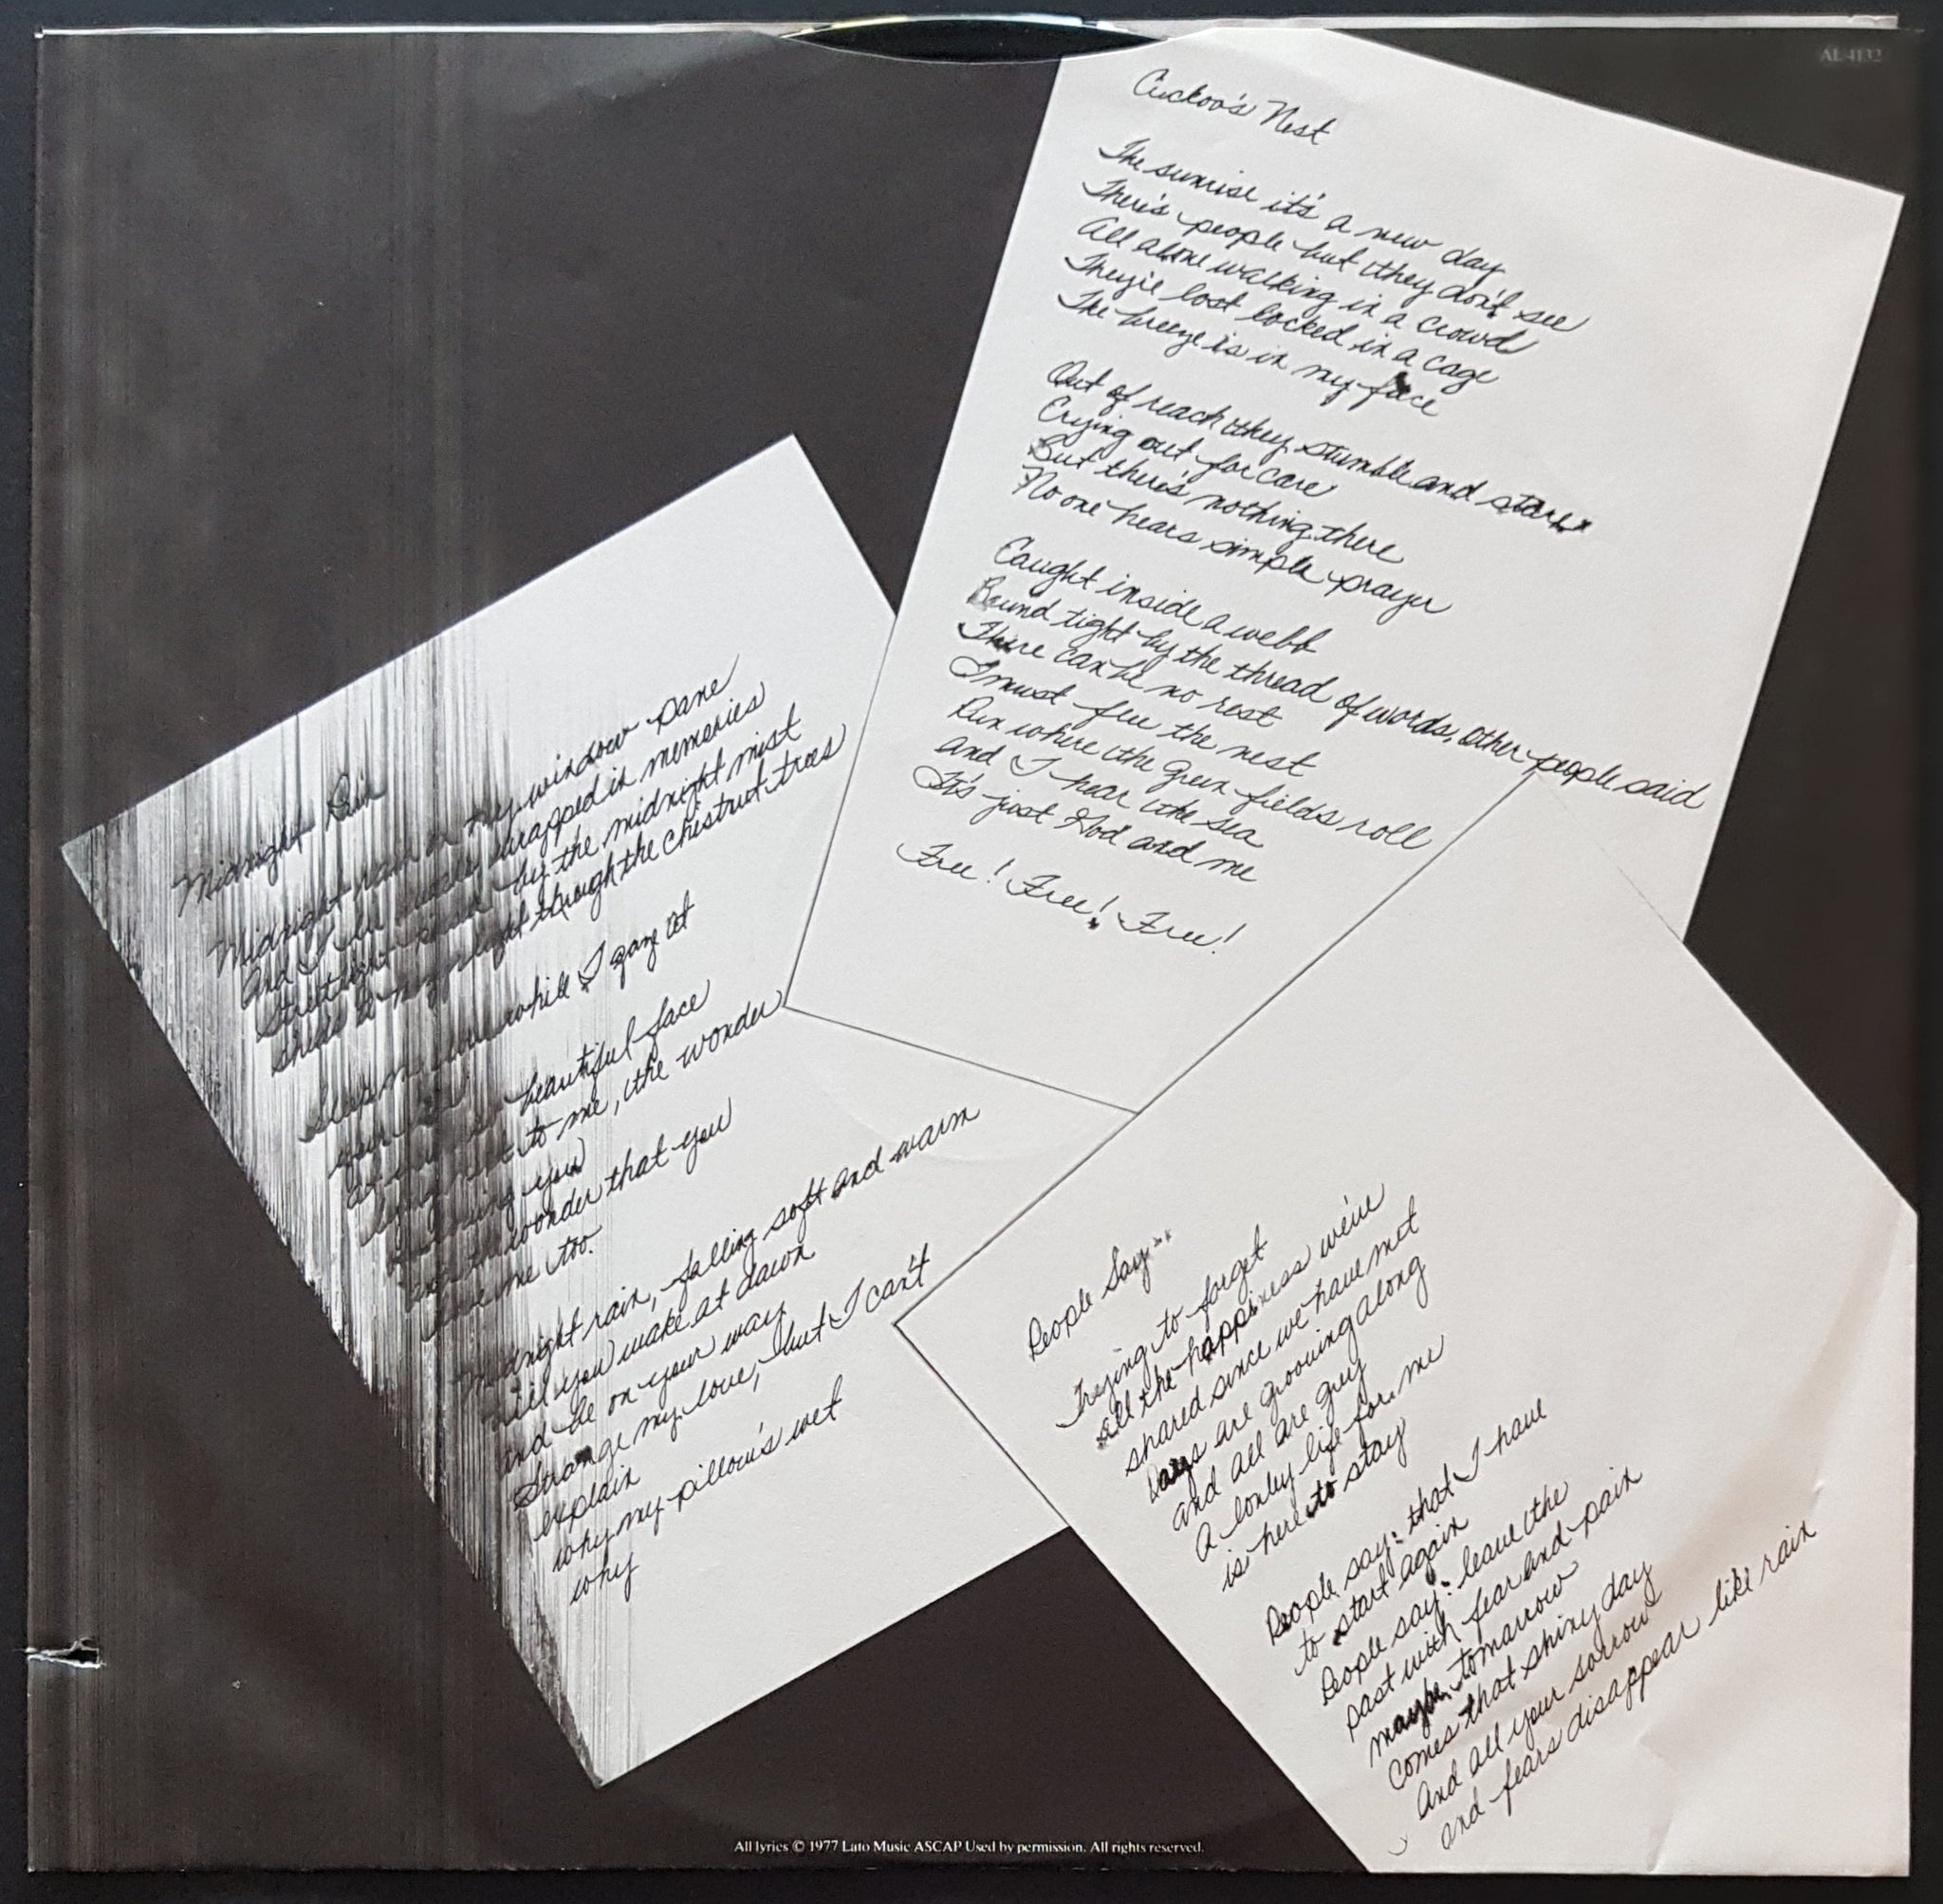 AL 4132
Cuckoo's Nest
The sunrise it's a new day
There's people but they don't see
All alone walking in a crowd
They're lost locked in a cage
The breeze is in my face
Out of reach they stumble and stare
Crying out for care
But there's nothing there
No one hears simple prayer
Caught inside a webb
Bound tight by the thread of words, other people said
There can be no rest
I must flee the nest
Run where the green fields roll
And I hear the sea
It's just God and me
Free! Free! Free!
Midnight Rain
Midnight rain on my window pane
And I lie wrapped in memories
Streetlight by the midnight mist
light through the chestnut trees
Sleep my love while I gaze at
your
beautiful face
lying next to me, the wonder
loving you
and the wonder that you
love me too.
Midnight rain, falling soft and warm
till you wake at dawn
and be on your way
Strange my love, but I can't
explain
why my pillow's wet
why
People Say...
Trying to forget
all the happiness we've
shared since we have met
Days are grooving along
and all are grey
A lonley life for me
is here to stay
People say: that I have
to start again
People say: leave the
past with fear and pain
maybe tomarrow
comes that shiny day
And all your sorrow
and fears disappear like rain
All lyrics © 1977 Lato Music ASCAP Used by permission. All rights reserved.